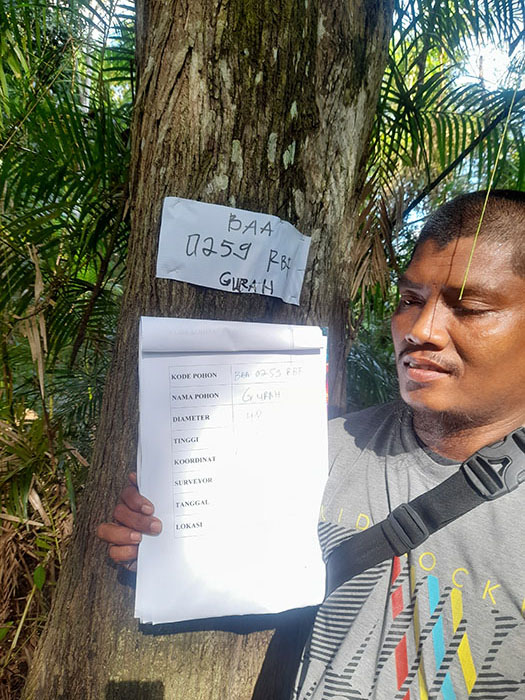 BAA
0259 RBF
GURAH
KODE POHON BAA 0259 RBF
NAMA POHON GURAH
DIAMETER
TINGGI
KOORDINAT
SURVEYOR
TANGGAL
LOKASI
KID ROCK